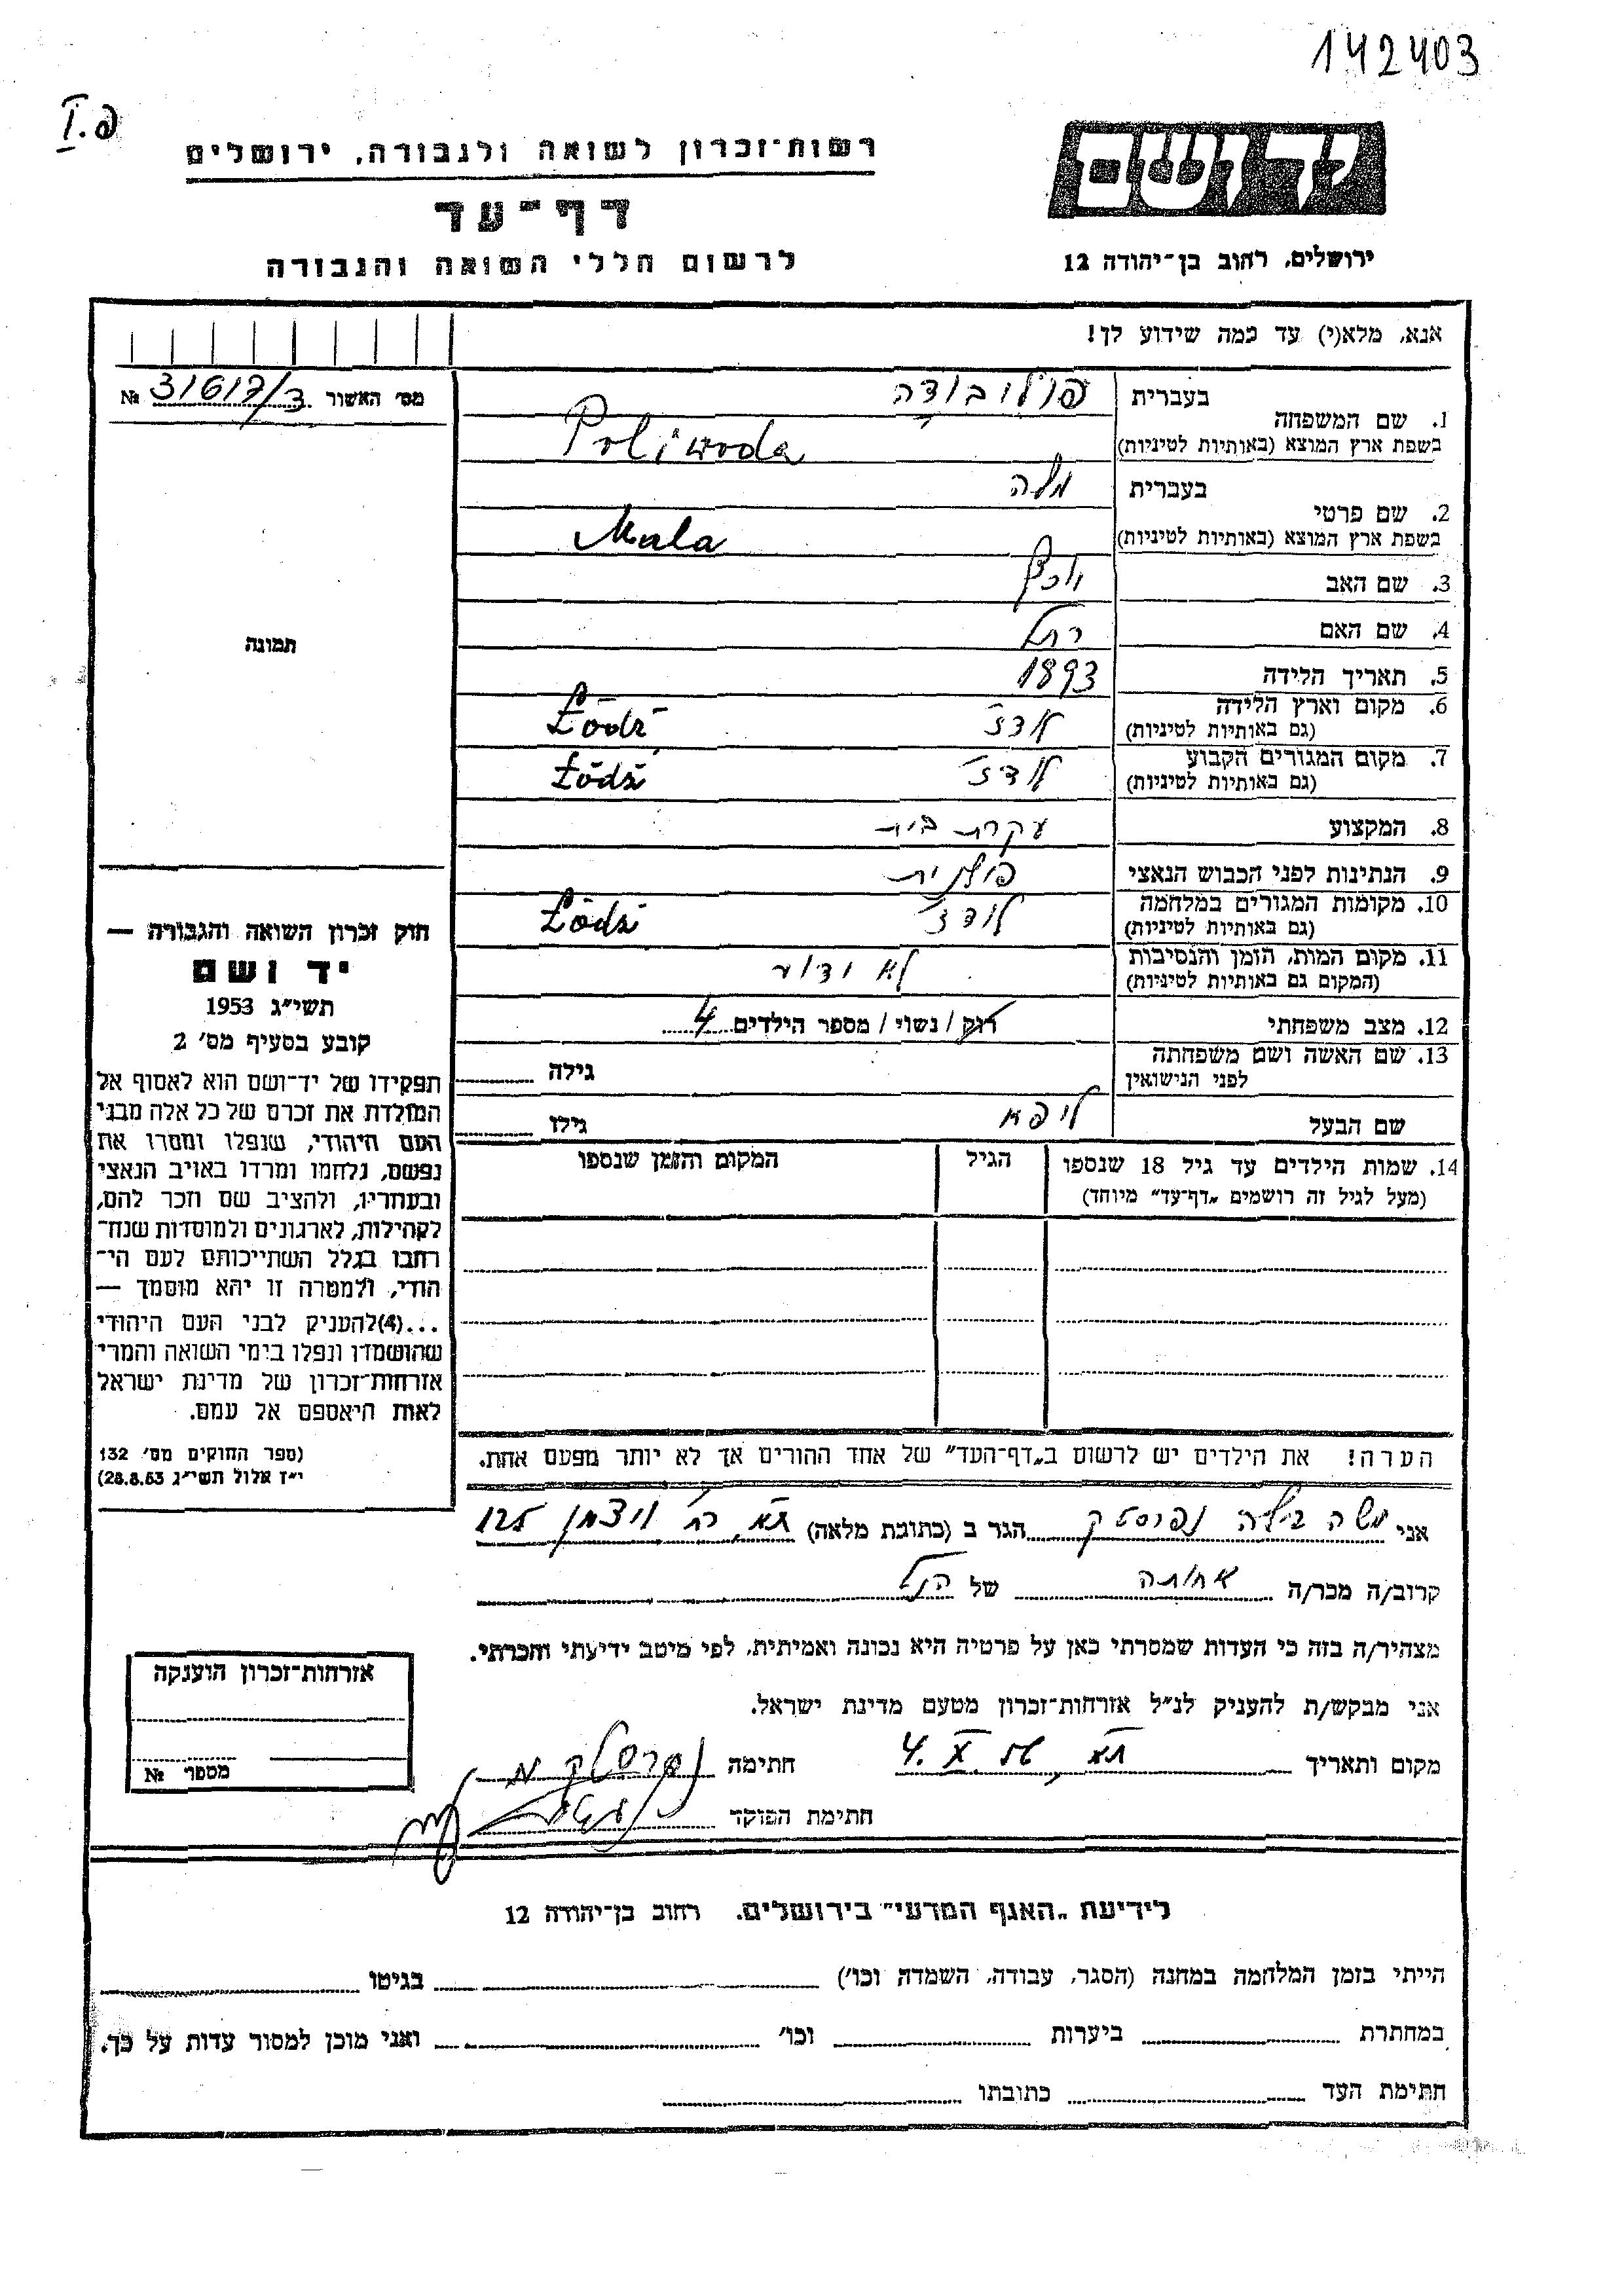 142403
I. פ
רשות־זכרון לשואה ולגבורה, ירושלים
יד ושם
דף־עד
לרשום חללי השואה והגבורה
ירושלים, רחוב בן־יהודה 12
אנא, מלא(י) עד כמה שידוע לך!
מס׳ האשור 31617/3 №
1. שם המשפחה
בעברית פוליבודה
בשפת ארץ המוצא (באותיות לטיניות) Poliwoda
2. שם פרטי
בעברית מלה
בשפת ארץ המוצא (באותיות לטיניות) Mala
3. שם האב
4. שם האם רחל
5. תאריך הלידה 1893
6. מקום וארץ הלידה
(גם באותיות לטיניות) לודז׳ Łódź
7. מקום המגורים הקבוע
(גם באותיות לטיניות) לודז׳ Łódź
8. המקצוע עקרת בית
9. הנתינות לפני הכבוש הנאצי פולנית
10. מקומות המגורים במלחמה
(גם באותיות לטיניות) לודז׳ Łódź
11. מקום המות, הזמן והנסיבות
(המקום גם באותיות לטיניות) לא ידוע
12. מצב משפחתי רוק / נשוי / מספר הילדים 4
13. שם האשה ושם משפחתה
לפני הנישואין גילה
שם הבעל ליפא גילו
14. שמות הילדים עד גיל 18 שנספו הגיל המקום והזמן שנספו
(מעל לגיל זה רושמים „דף־עד״ מיוחד)
הערה! את הילדים יש לרשום ב„דף־העד״ של אחד ההורים אך לא יותר מפעם אחת.
תמונה
חוק זכרון השואה והגבורה —
יד ושם
תשי״ג 1953
קובע בסעיף מס׳ 2
תפקידו של יד־ושם הוא לאסוף אל
המולדת את זכרם של כל אלה מבני
העם היהודי, שנפלו ומסרו את
נפשם, נלחמו ומרדו באויב הנאצי
ובעוזריו, ולהציב שם וזכר להם,
לקהילות, לארגונים ולמוסדות שנח־
רבו בגלל השתייכותם לעם הי־
הודי, ולמטרה זו יהא מוסמך —
...(4)להעניק לבני העם היהודי
שהושמדו ונפלו בימי השואה והמרי
אזרחות־זכרון של מדינת ישראל
לאות היאספם אל עמם.
(ספר החוקים מס׳ 132
י״ז אלול תשי״ג 28.8.53)
אני הגר ב (כתובת מלאה) ת״א, רח׳ ויצמן 125
קרוב/ה מכר/ה אחותה של הנ״ל
מצהיר/ה בזה כי העדות שמסרתי כאן על פרטיה היא נכונה ואמיתית, לפי מיטב ידיעתי והכרתי.
אני מבקש/ת להעניק לנ״ל אזרחות־זכרון מטעם מדינת ישראל.
מקום ותאריך ת״א, 4. X. 56 חתימה
חתימת הפוקד
אזרחות־זכרון הוענקה
מספר №
לידיעת „האגף המדעי״ בירושלים. רחוב בן־יהודה 12
הייתי בזמן המלחמה במחנה (הסגר, עבודה, השמדה וכו׳) בגיטו
במחתרת ביערות וכו׳ ואני מוכן למסור עדות על כך.
חתימת העד כתובתו